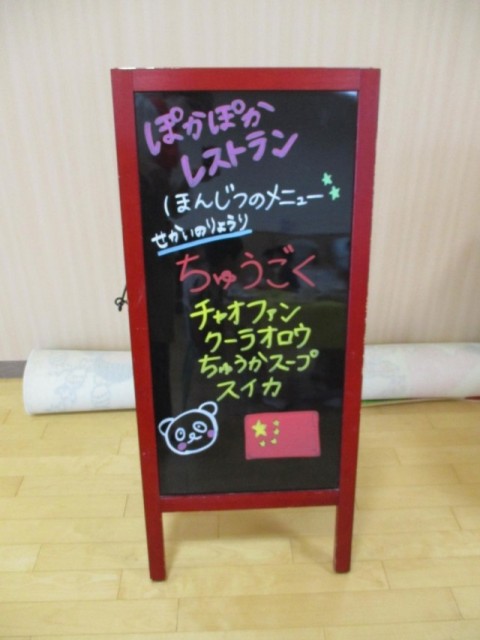 ぽかぽか
レストラン
ほんじつのメニュー
せかいのりょうり
ちゅうごく
チャオファン
クーラオロウ
ちゅうかスープ
スイカ